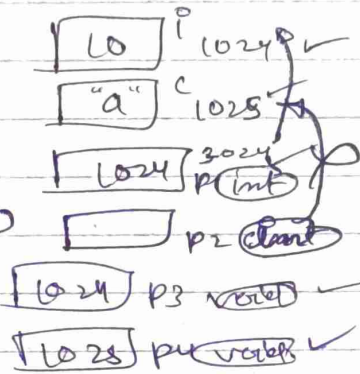 10 i 1024
"a" c 1025
1024 3024 p int
p2 char
1024 p3 void
1025 p4 void